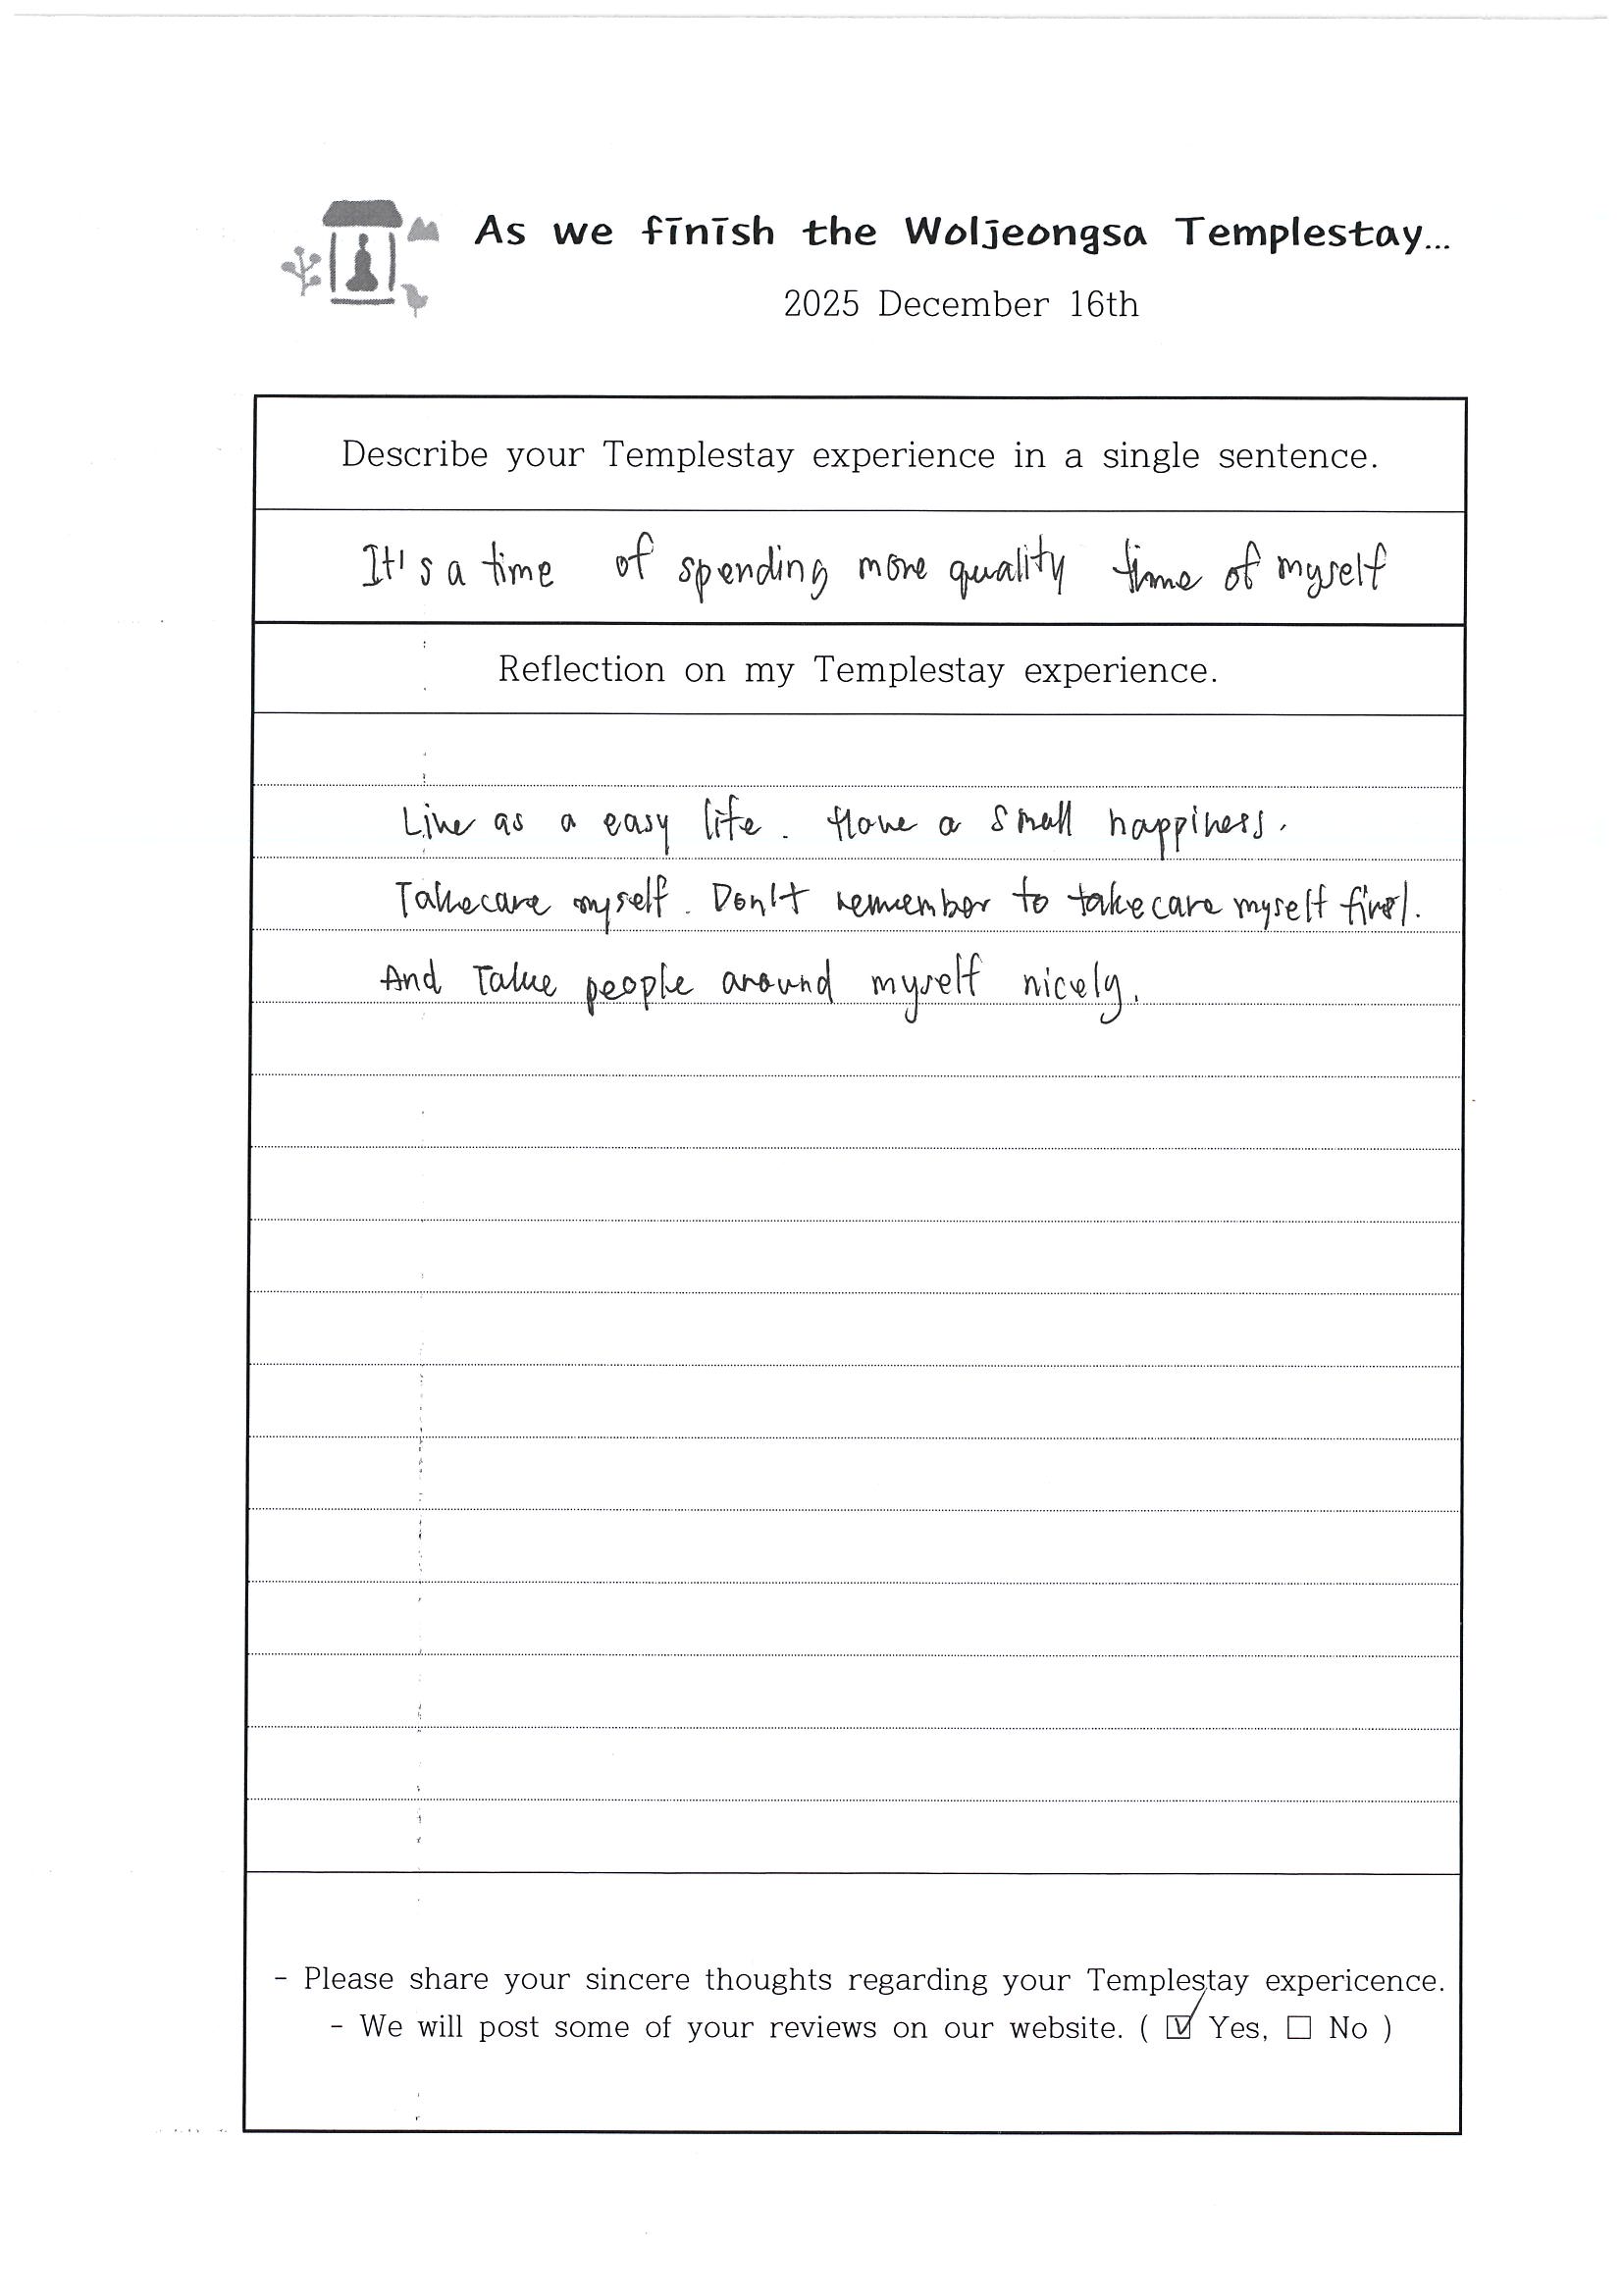 As we finish the Woljeongsa Templestay...
2025 December 16th
Describe your Templestay experience in a single sentence.
It's a time of spending more quality time of myself
Reflection on my Templestay experience.
Live as a easy life. Have a small happiness.
Takecare myself. Don't remember to takecare myself first.
And Take people around myself nicely.
- Please share your sincere thoughts regarding your Templestay expericence.
- We will post some of your reviews on our website. ( ☑ Yes, ☐ No )